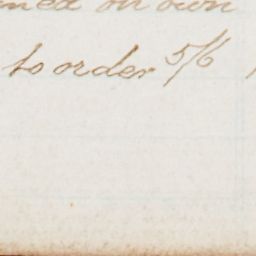 on own
to order 5/6